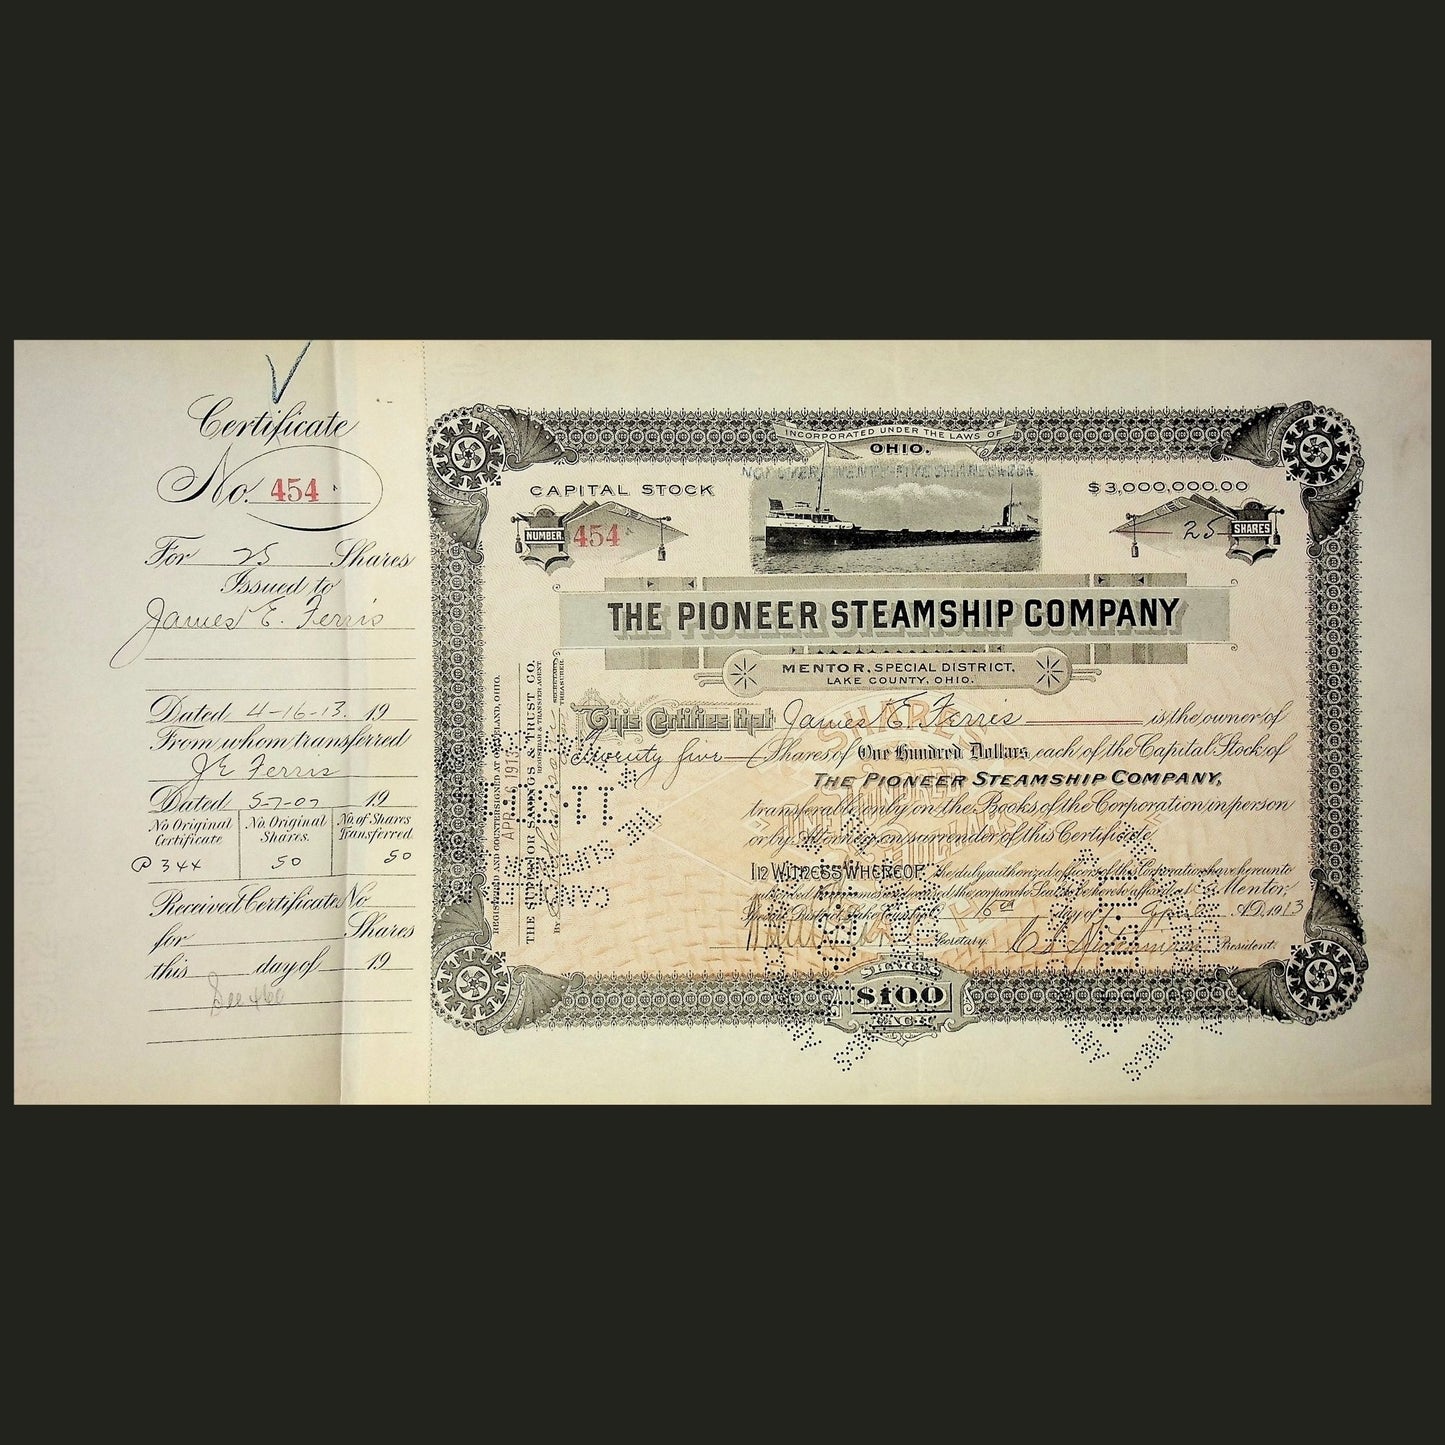 Certificate
No. 454
For 25 Shares
Issued to
James E. Ferris
Dated 4-16-13. 19
From whom transferred
J E Ferris
Dated 5-7-07 19
No Original Certificate
No. Original Shares.
No. of Shares Transferred
P 344
50
50
Received Certificate No
for Shares
this day of 19
See 460
INCORPORATED UNDER THE LAWS OF
OHIO.
NOT OVER TWENTY-FIVE SHARES
CAPITAL STOCK
$3,000,000.00
NUMBER
454
25
SHARES
THE PIONEER STEAMSHIP COMPANY
MENTOR, SPECIAL DISTRICT,
LAKE COUNTY, OHIO.
This Certifies that James E. Ferris is the owner of
Twenty five Shares of One Hundred Dollars each, of the Capital Stock of
THE PIONEER STEAMSHIP COMPANY,
transferable only on the Books of the Corporation in person
or by Attorney on surrender of this Certificate.
In Witness Whereof, the duly authorized officers of this Corporation have hereunto
subscribed their names and caused the corporate Seal to be hereto affixed at Mentor,
Special District, Lake County, O. 16th day of April A.D. 1913
Secretary.
President.
SHARES
$100
EACH
REGISTERED AND COUNTERSIGNED AT CLEVELAND, OHIO.
APR 16 1913
THE SUPERIOR SAVINGS & TRUST CO.
REGISTRAR & TRANSFER AGENT
By
SECRETARY
TREASURER